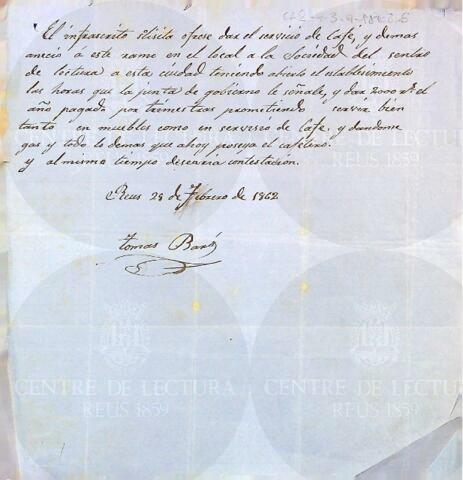 El infrascrito slisita ofrese dar el servicio de Cafe, y demas
anecsó á este ramo en el local a la Sociedad del sentro
de lectura a esta ciudad teniendo abierto el establesimiento
las horas que la junta de gobierno le señale, y dar 2000 rs. el
año pagado por trimestras prometiendo servir bien
tanto en muebles como en servisió de Cafe, y dandome
gas y todo lo demas que ahoy poseya el cafetero.
y al mismo tiempo desearia contestación.
Reus 28 de Febrero de 1862
Tomas
CENTRE DE LECTURA
REUS 1859
CENTRE DE LECTURA
REUS 1859
CENTRE DE LECTURA
REUS 1859
CENTRE DE LECTURA
REUS 1859